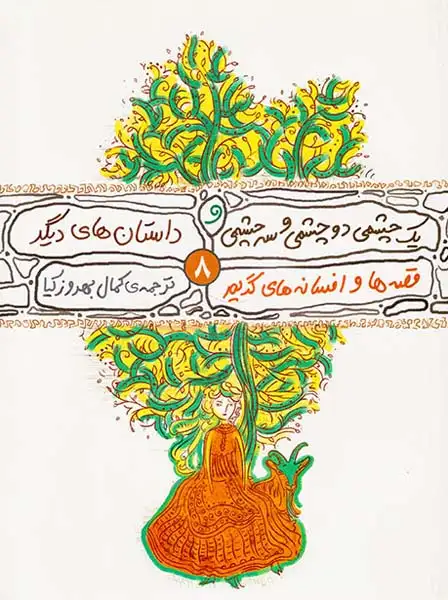 یک چشمی دو چشمی و سه چشمی
و
داستان های دیگر
قصه ها و افسانه های گریم
۸
ترجمه‌ی کمال بهروزکیا